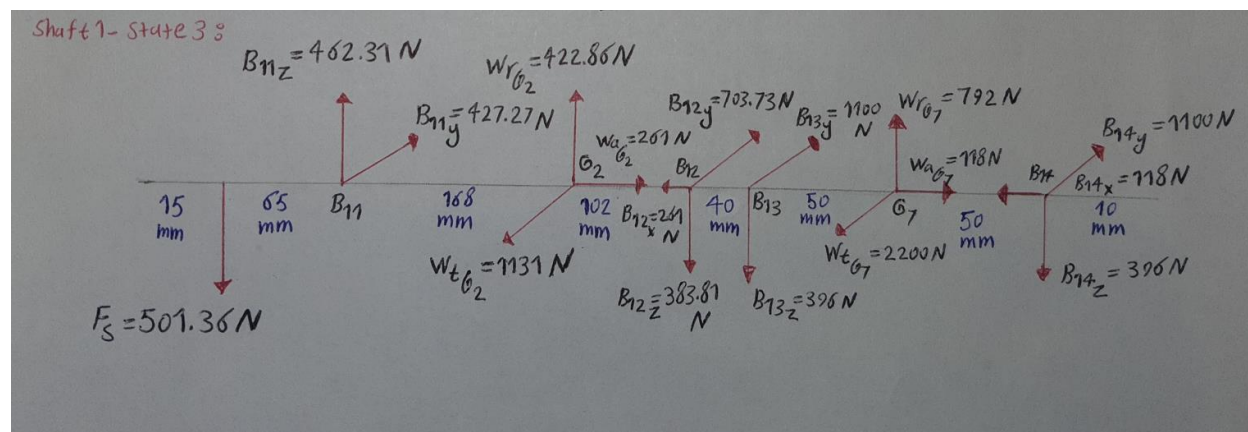 Shaft 1 - State 3 :
B11z = 462.31 N
B11y = 427.27 N
WrG2 = 422.86 N
WaG2 = 261 N
B12y = 703.73 N
B13y = 1100 N
WrG7 = 792 N
WaG7 = 118 N
B14y = 1100 N
B14x = 118 N
G2
B12
B14
15 mm
65 mm
B11
168 mm
102 mm
B12x = 261 N
40 mm
B13
50 mm
G7
50 mm
10 mm
Fs = 501.36 N
WtG2 = 1131 N
B12z = 383.81 N
B13z = 396 N
WtG7 = 2200 N
B14z = 396 N